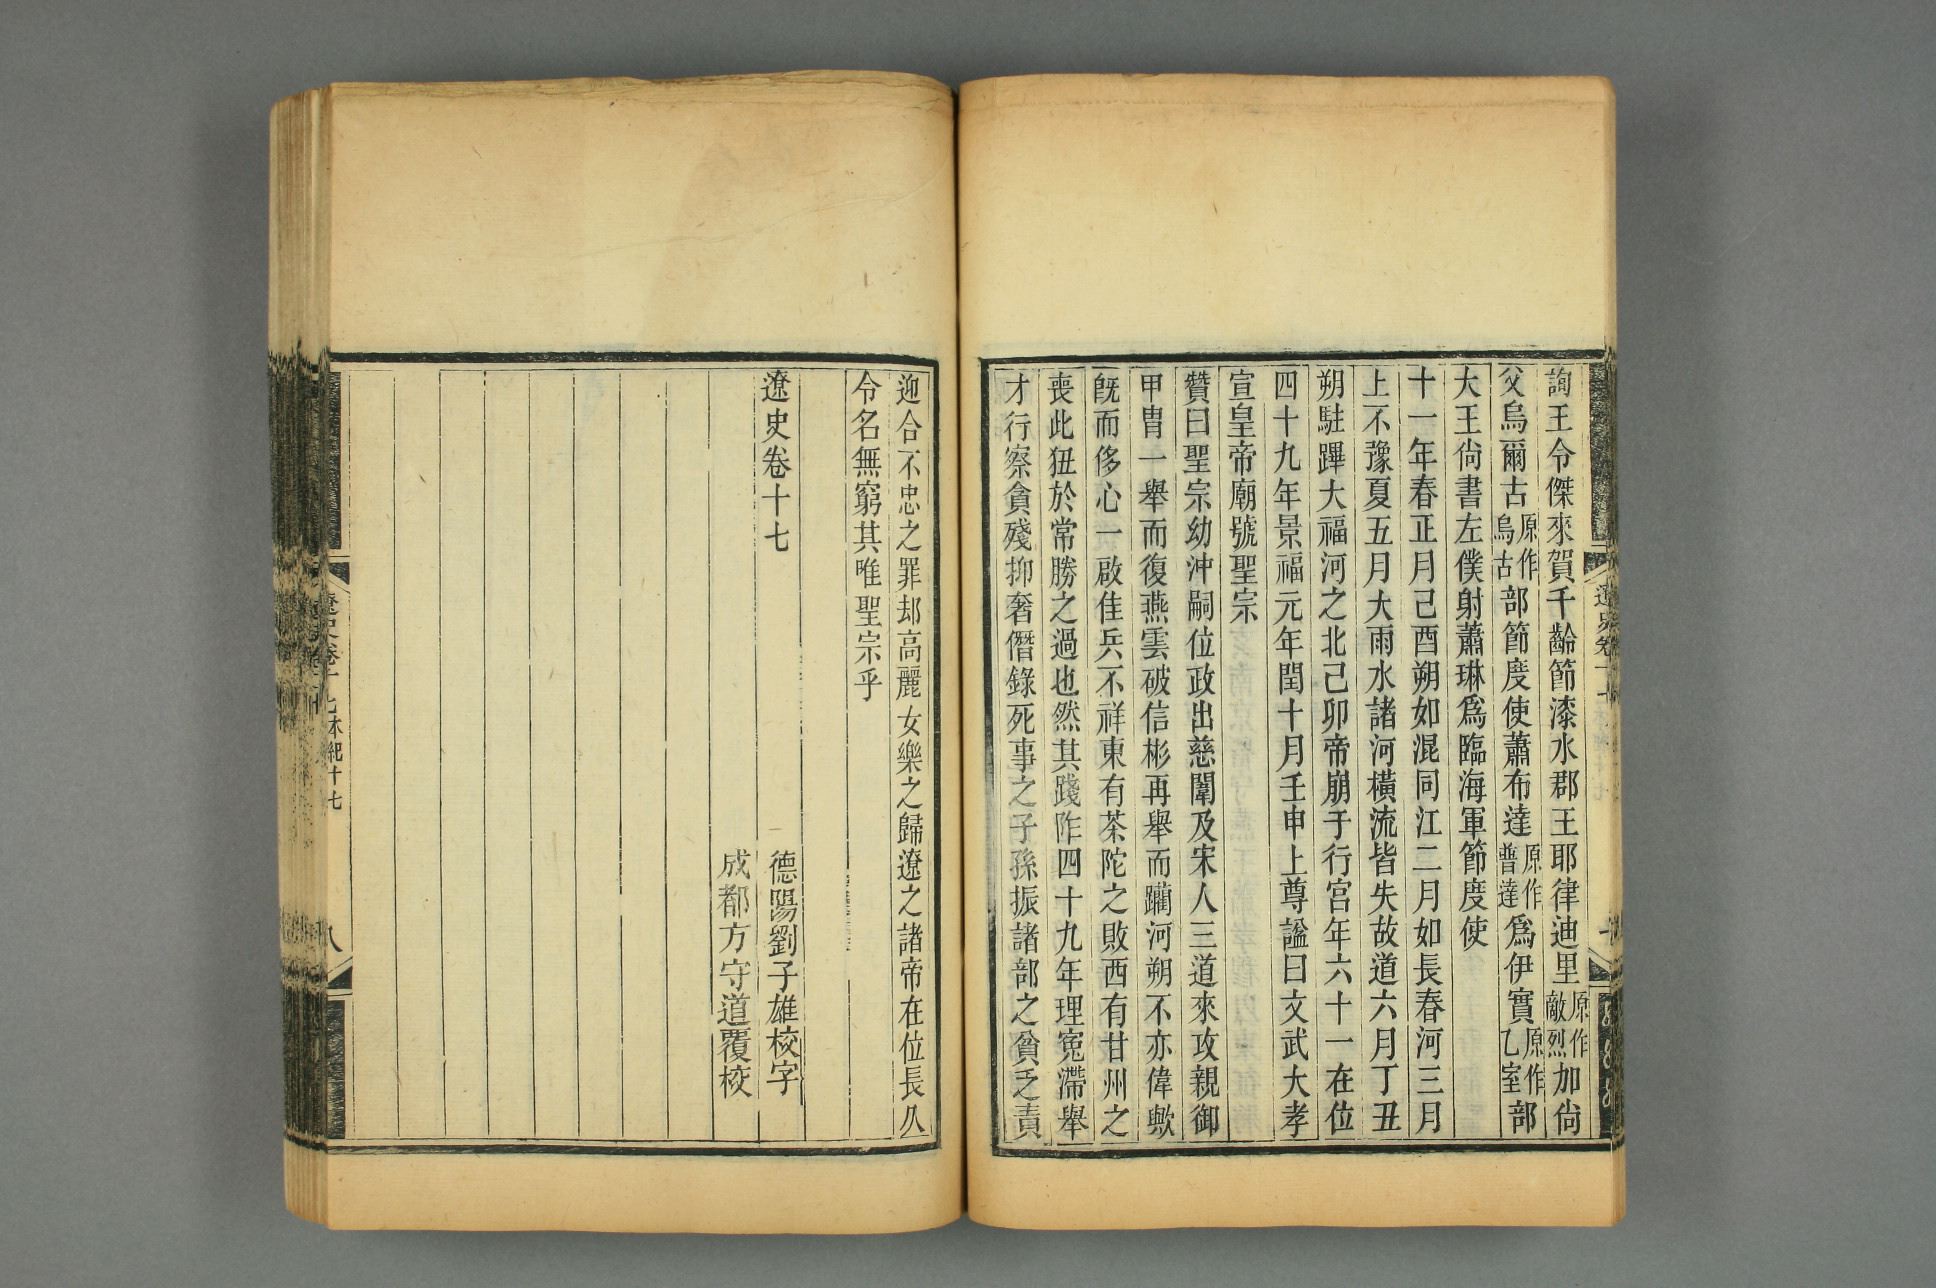 詢王令傑來賀千齡節漆水郡王耶律迪里原作敵烈加尙
父烏爾古原作烏古部節度使蕭布達原作普達爲伊實原作乙室部
大王尙書左僕射蕭琳爲臨海軍節度使
十一年春正月己酉朔如混同江二月如長春河三月
上不豫夏五月大雨水諸河橫流皆失故道六月丁丑
朔駐蹕大福河之北己卯帝崩于行宮年六十一在位
四十九年景福元年閏十月壬申上尊諡曰文武大孝
宣皇帝廟號聖宗
贊曰聖宗幼沖嗣位政出慈闈及宋人三道來攻親御
甲胄一舉而復燕雲破信彬再舉而躪河朔不亦偉歟
旣而侈心一啟佳兵不祥東有茶陀之敗西有甘州之
喪此狃於常勝之過也然其踐阼四十九年理冤滯舉
才行察貪殘抑奢僭錄死事之子孫振諸部之貧乏責
迎合不忠之罪却高麗女樂之歸遼之諸帝在位長久
令名無窮其唯聖宗乎
遼史卷十七
德陽劉子雄校字
成都方守道覆校
遼史卷十七本紀十七
八